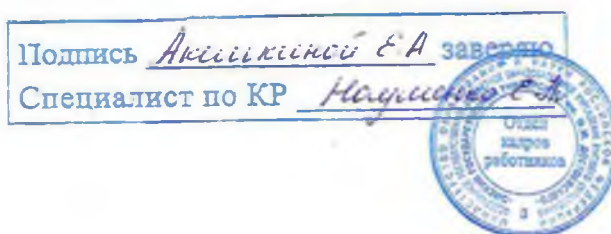 Подпись Акишкиной Е А заверяю
Специалист по КР Науменко Е.А.
Отдел
кадров
работников
3